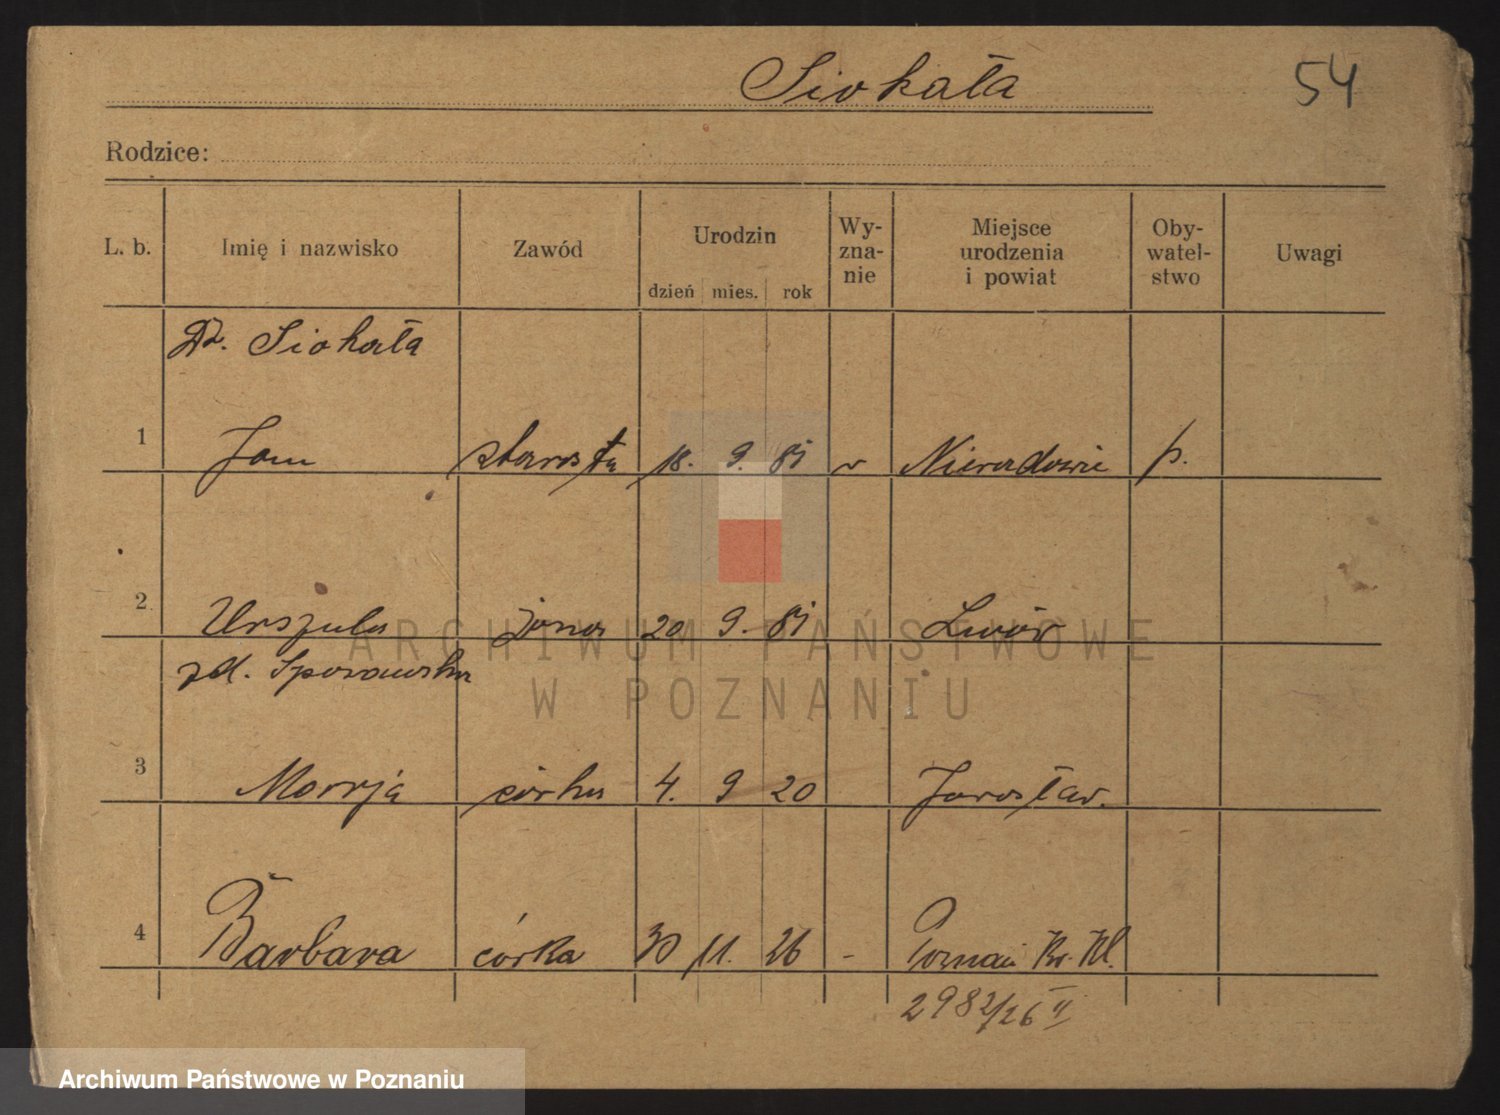 Siokała 54
Rodzice:
L. b. Imię i nazwisko Zawód Urodzin dzień mies. rok Wy-zna-nie Miejsce urodzenia i powiat Oby-watel-stwo Uwagi
Dr. Siokała
1 Jan starosta 18. 9. 81 r Nieradowie p.
2 Urszula żona 20 9. 81 Lwów
zd.
3 Marja córka 4. 9 20 Jarosław.
4 Barbara córka 30 11. 26 - Poznań
2982/26 II
ARCHIWUM PAŃSTWOWE
W POZNANIU
Archiwum Państwowe w Poznaniu